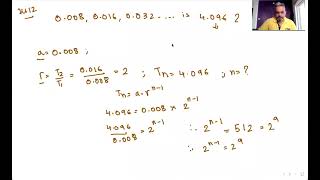 0.008, 0.016, 0.032 ... is 4.096 ?
a = 0.008 ;
r = T2/T1 = 0.016/0.008 = 2 ; Tn = 4.096 ; n = ?
Tn = a·r^n-1
4.096 = 0.008 × 2^n-1
4.096/0.008 = 2^n-1
∴ 2^n-1 = 512 = 2^9
∴ 2^n-1 = 2^9